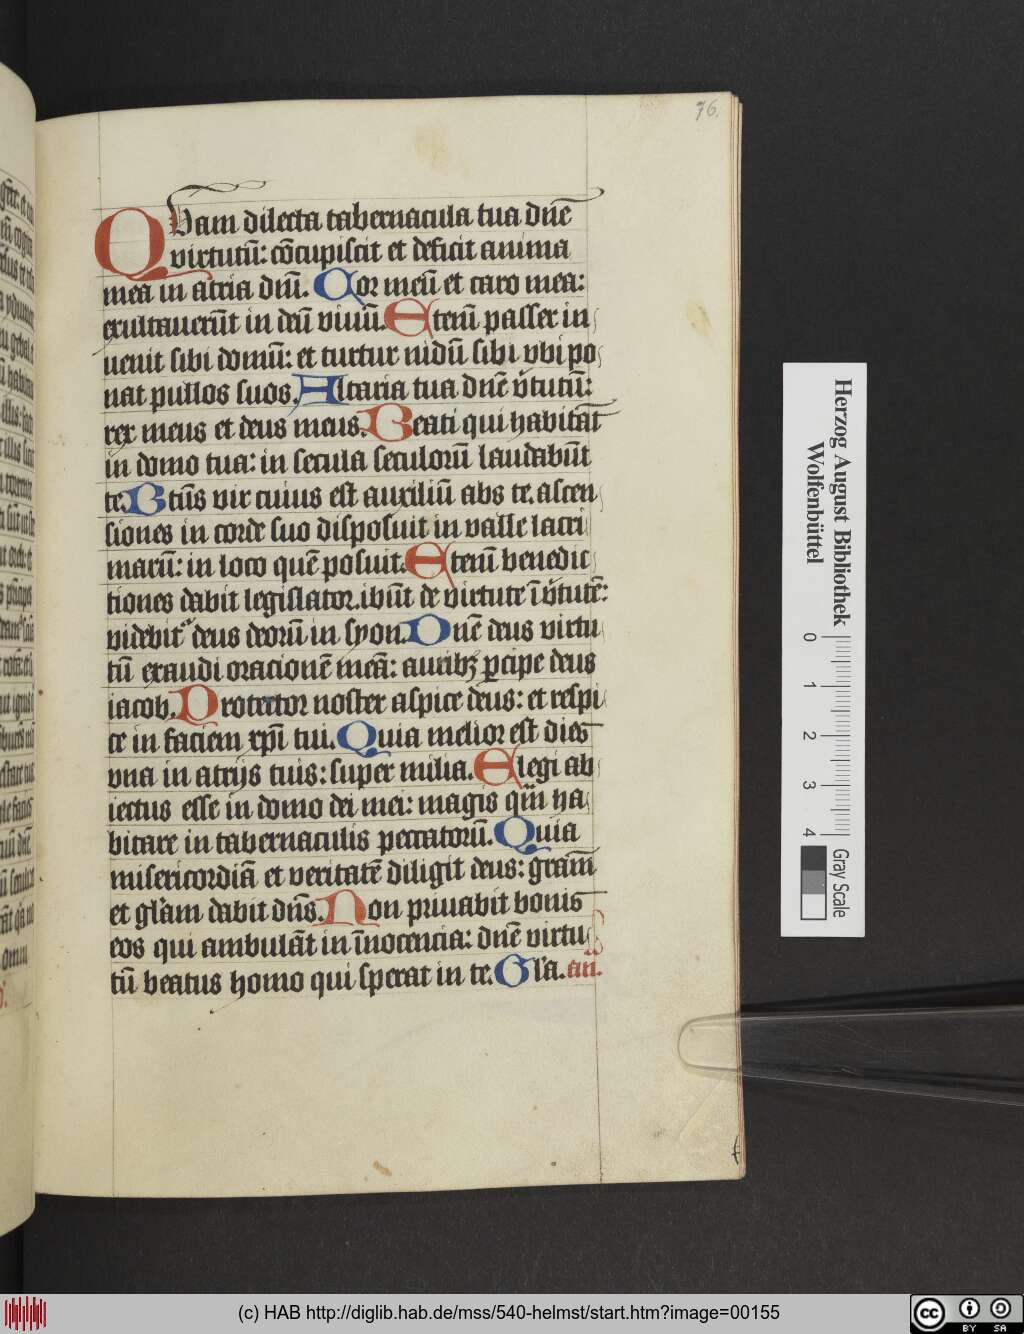 76.
QVam dilecta tabernacula tua dn̄e
virtutū: cōcupiscit et deficit anima
mea in atria dn̄i. Cor meū et caro mea:
exultauerūt in deū viuū. Etenī passer in
uenit sibi domū: et turtur nidū sibi vbi po
nat pullos suos. Altaria tua dn̄e v̓tutū:
rex meus et deus meus. Beati qui habitāt
in domo tua: in secula seculorū laudabūt
te. Btūs vir cuius est auxiliū abs te. ascen
siones in corde suo disposuit in valle lacri
marū: in loco quē posuit. Etenī benedic
tiones dabit legislator. ibūt de virtute ī v̓tutē:
videbit᷑ deus deorū in syon. Dn̄e deus virtu
tū exaudi oracionē meā: auribꝫ ꝑcipe deus
iacob. Protector noster aspice deus: et respi
ce in faciem xp̄i tui. Quia melior est dies
vna in atrijs tuis: super milia. Elegi ab
iectus esse in domo dei mei: magis qm̄ ha
bitare in tabernaculis peccatorū. Quia
misericordiā et veritatē diligit deus: gram̄
et gl̓am dabit dn̄s. Non priuabit bonis
eos qui ambulāt in īnocencia: dn̄e virtu
tū beatus homo qui sperat in te. Gl̓a. an̄.
Herzog August Bibliothek
Wolfenbüttel
0 1 2 3 4
Gray Scale
(c) HAB http://diglib.hab.de/mss/540-helmst/start.htm?image=00155
cc BY SA